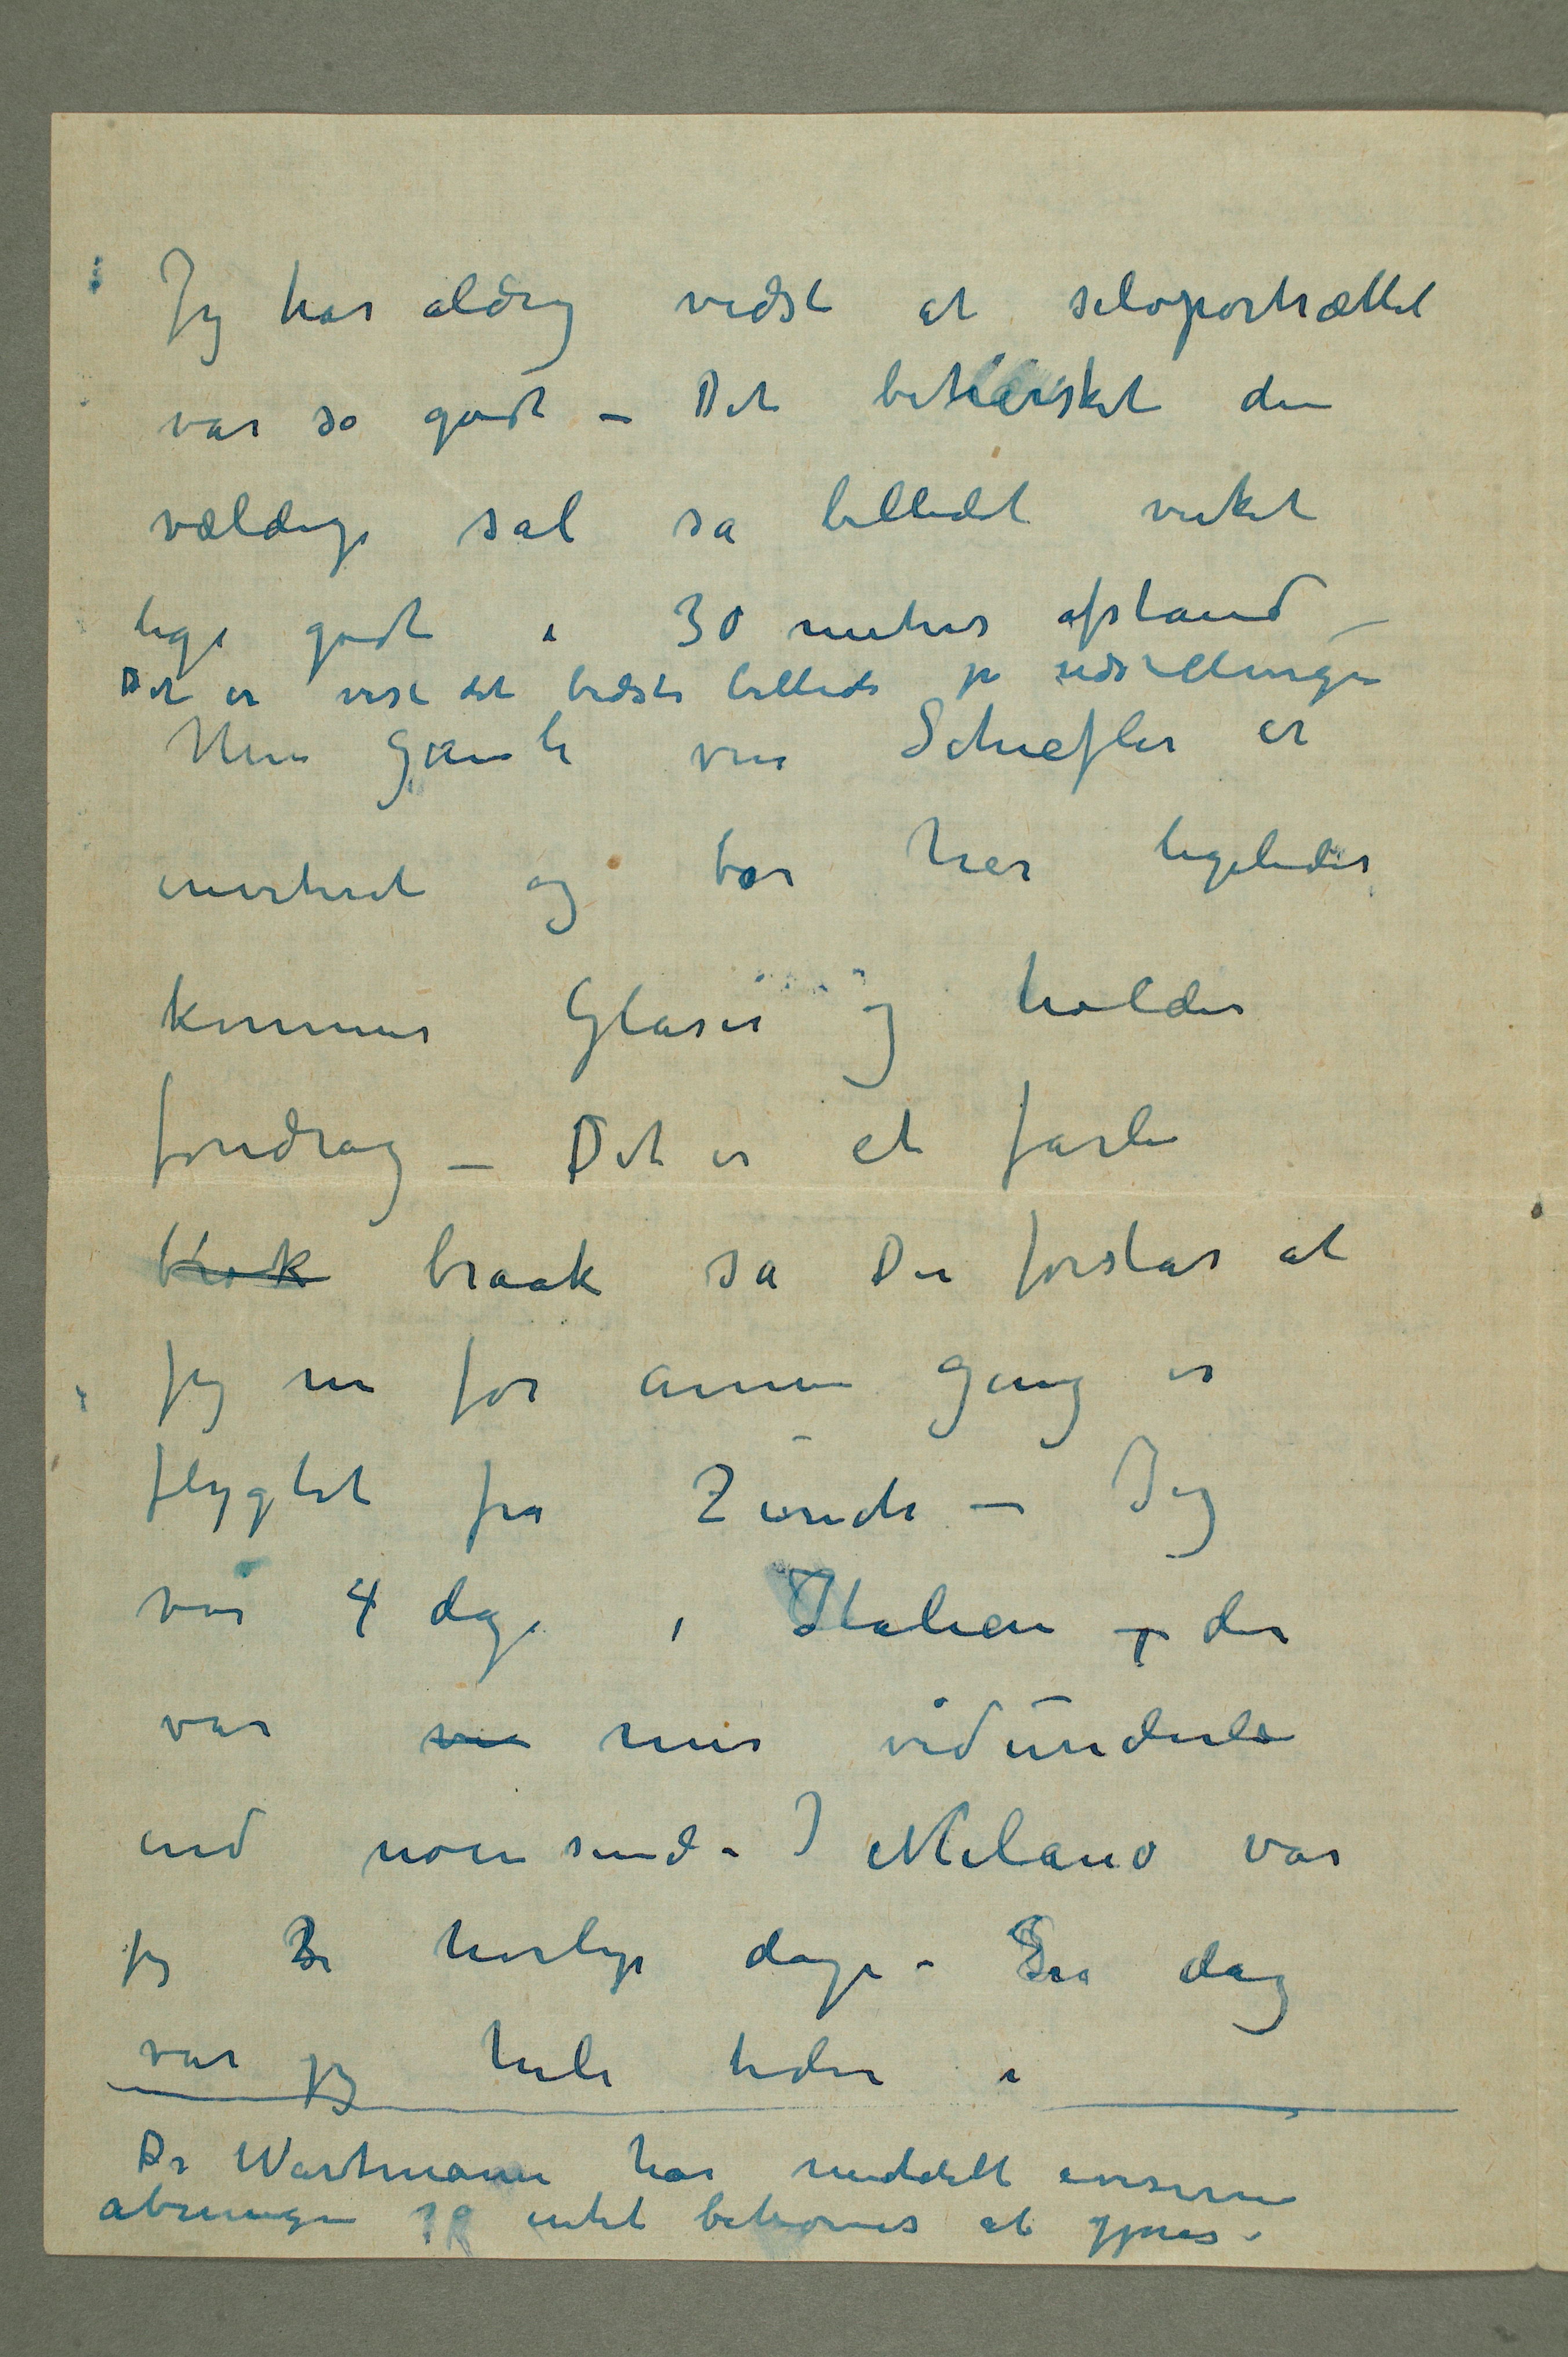 Jeg har aldrig vidst at selvportrættet
var så godt – Det behærsket den
vældige sal så billedet virket
lige godt i 30 meters afstand –
Det er vist det bedste billede på udstillingen
Min gamle ven Schiefler er
inviteret og bor her ligeledes
kommer Glaser og holder
foredrag – Det er et farlig
brak braak så Du forstår at
jeg nu for annen gang er
flygtet fra Zürich – Jeg
var 4 dage i Italien – der
var mer vidunderli
end noensinde – I Milano var
jeg 3 herlige dage – En dag
var jeg hele tiden i
Dr Wartmann har meddelt aviserne
åbningen så intet behøves at gjøres –